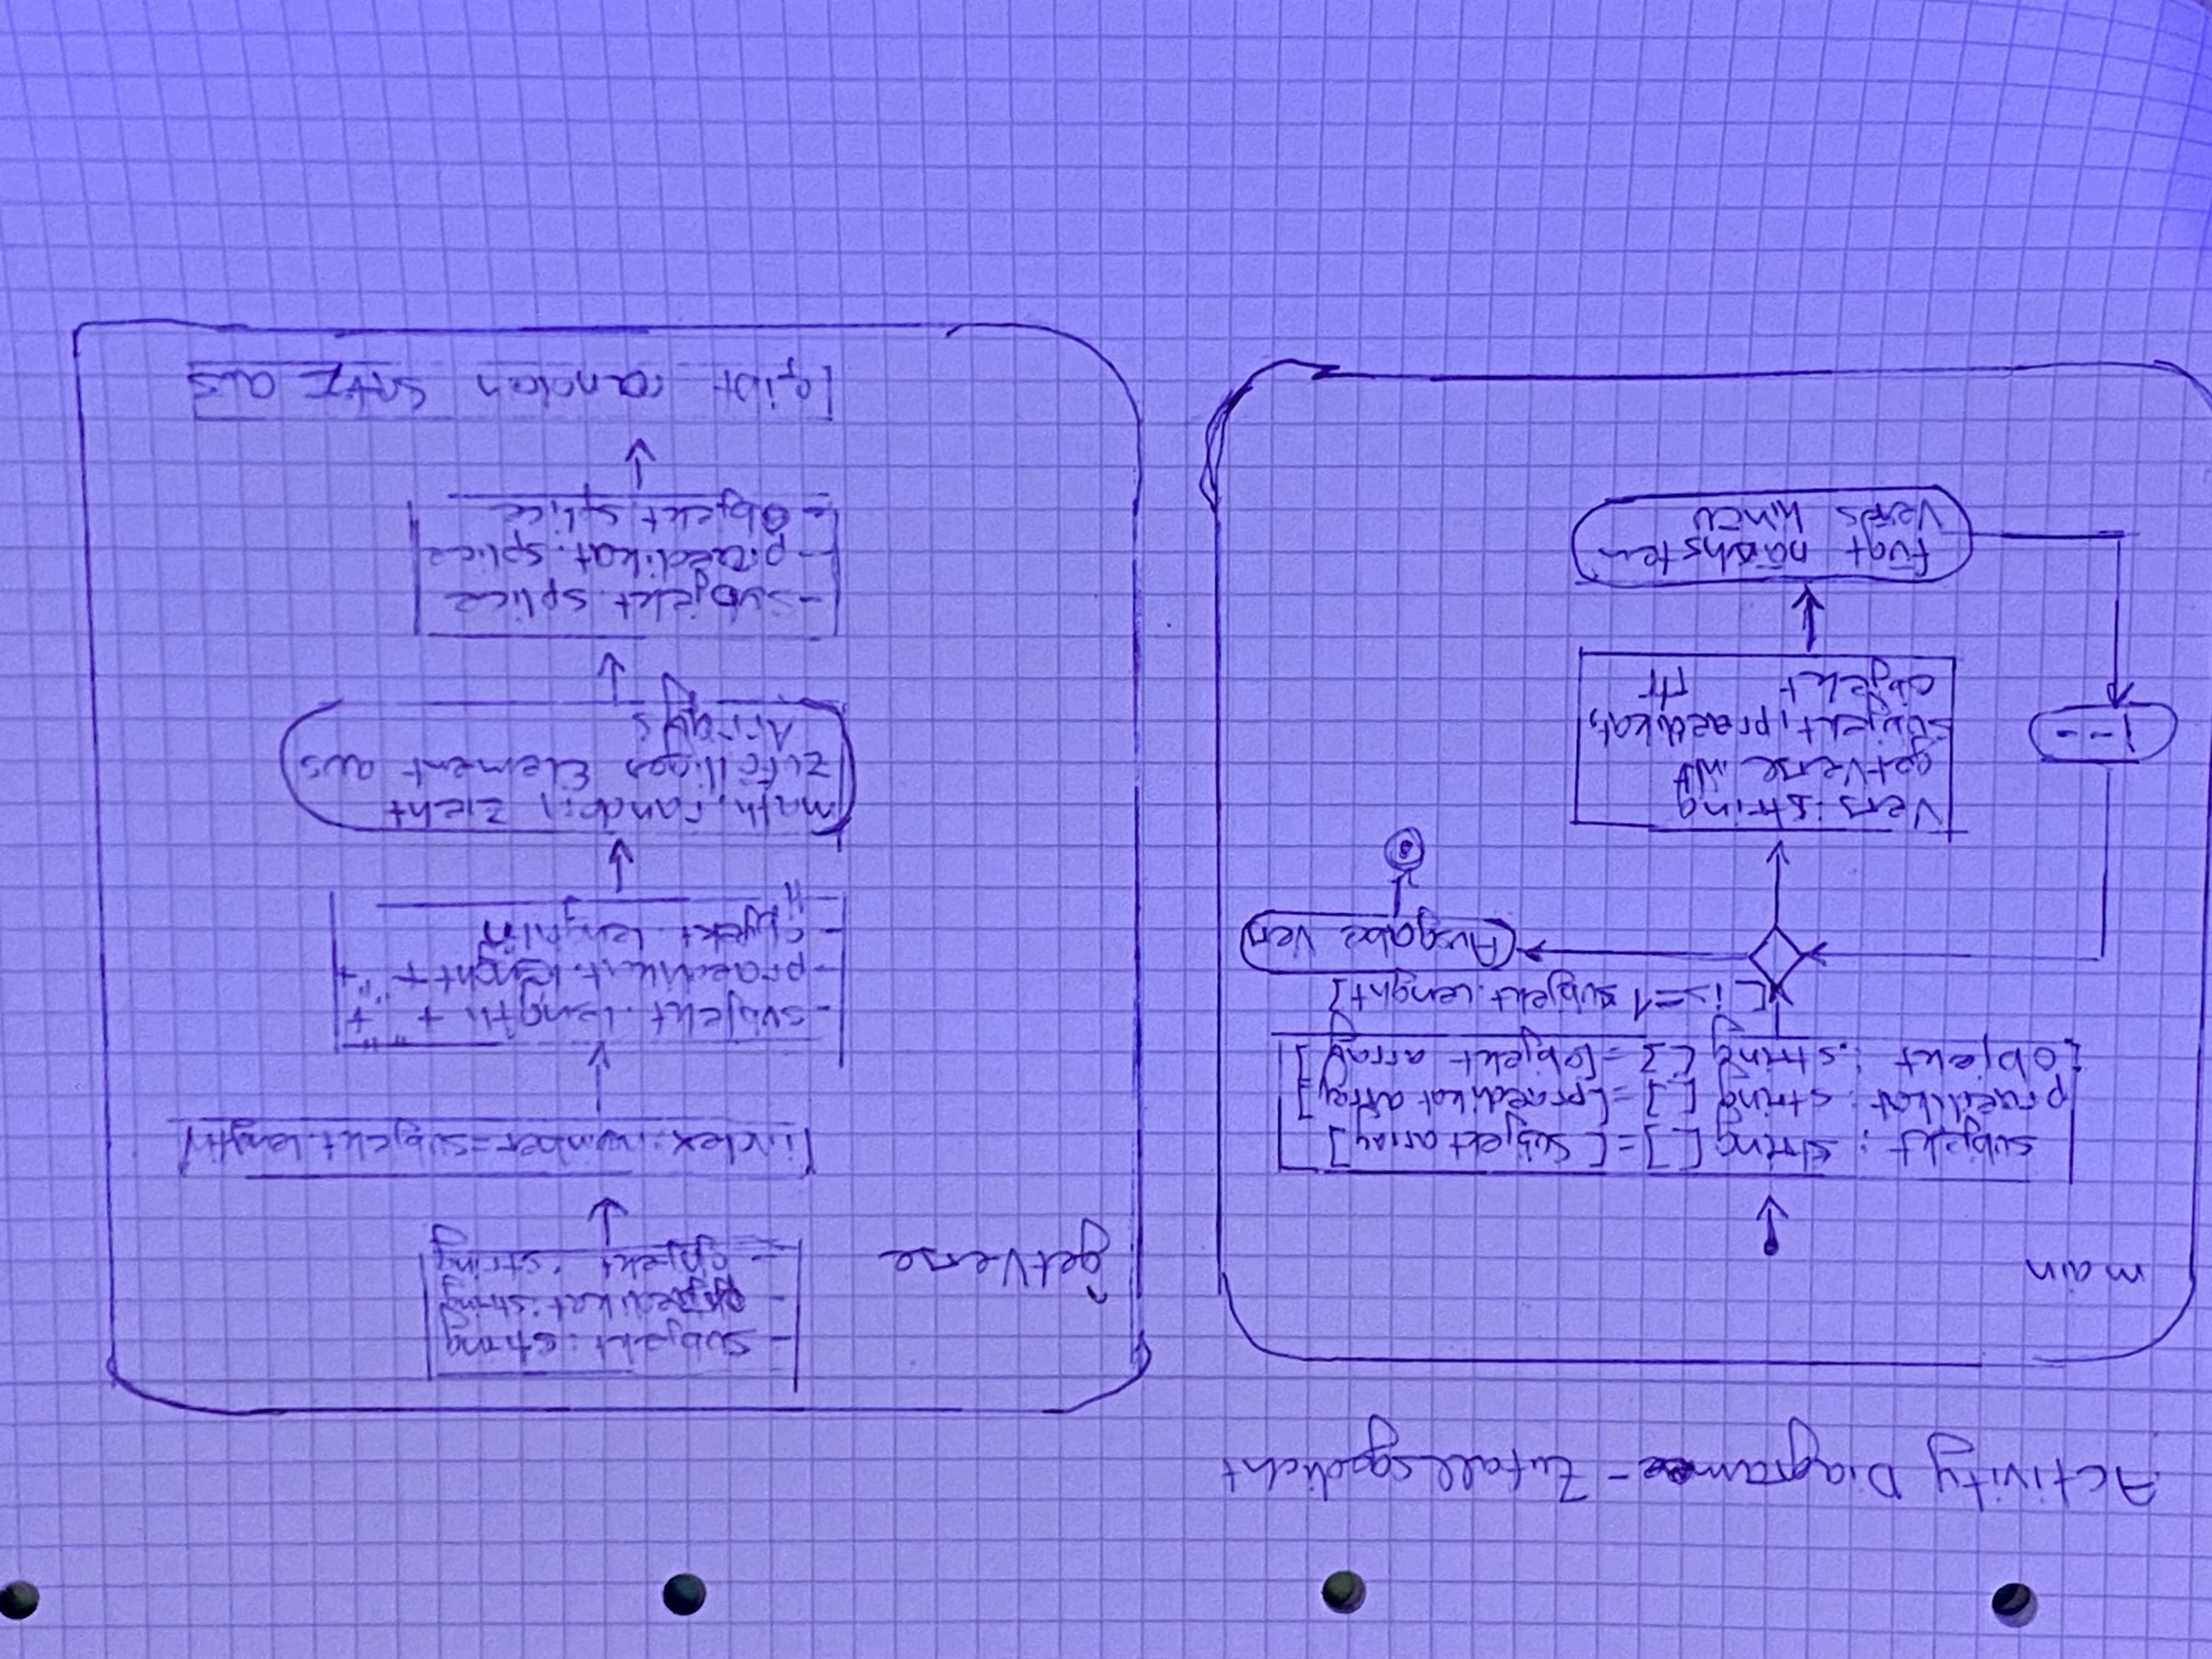 Activity Diagramm - Zufallsgedicht
main
subjekt : string [ ] = [ Subjekt array ]
praedikat : string [ ] = [praedikat array]
objekt : string [ ] = [objekt array ]
[ i>=1 subjekt.lenght]
Ausgabe Vers
Vers : string
getVerse mit
subjekt, praedikat,
objekt
i--
fügt nächsten
Vers hinzu
getVerse
- subjekt : string
- praedikat : string
- objekt : string
index : number = subjekt.length
- subjekt.length + " " +
- praedikat.lenght + " " +
- objekt.lenght
math.random zieht
zufälliges Element aus
Arrays
- subjekt.splice
- praedikat.splice
- Objekt.splice
gibt random Satz aus